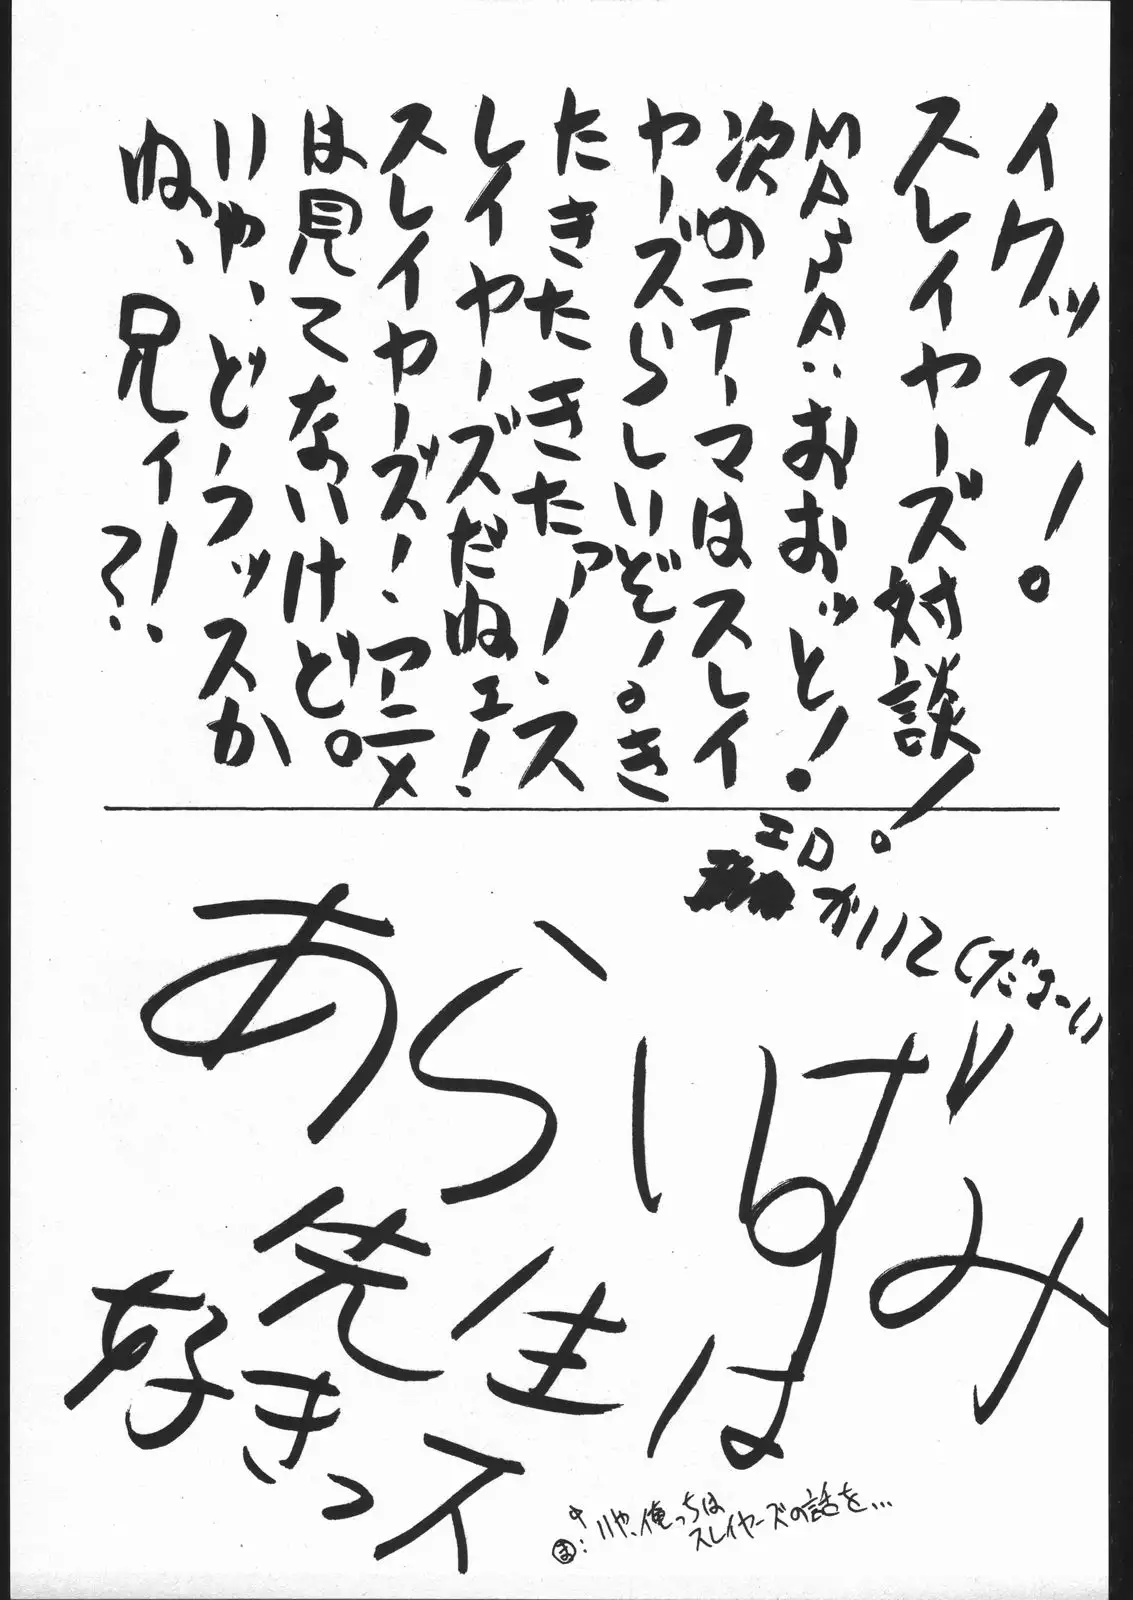 イクッス！
スレイヤーズ対談！
MASA：おおッと！
次のテーマはスレイ
ヤーズらしいぞー。き
たきたきたァー！ス
レイヤーズだねェ！
スレイヤーズ！アニメ
は見てないけど。
いや、どーフッスか
ね、兄ィ！？
エロ
かいてくださーい
みずいは
あら
先生
好きっス
ま：いや、俺っちは
スレイヤーズの話を…